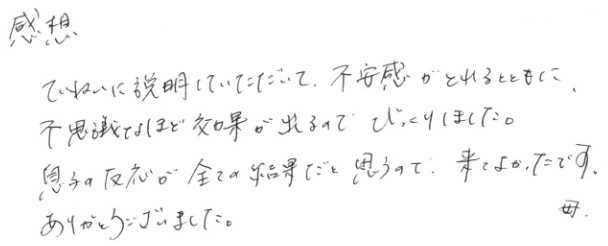 感想
ていねいに説明していただいて、不安感がとれるとともに、
不思議なほど効果が出るのでびっくりしました。
息子の反応が全ての結果だと思うので、来てよかったです。
ありがとうございました。
母.